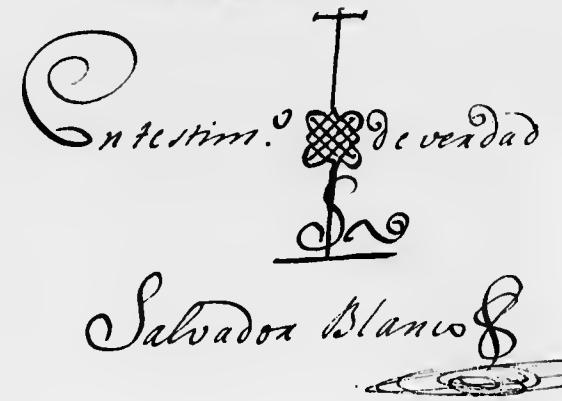 En testim.º de verdad
Salvador Blanco